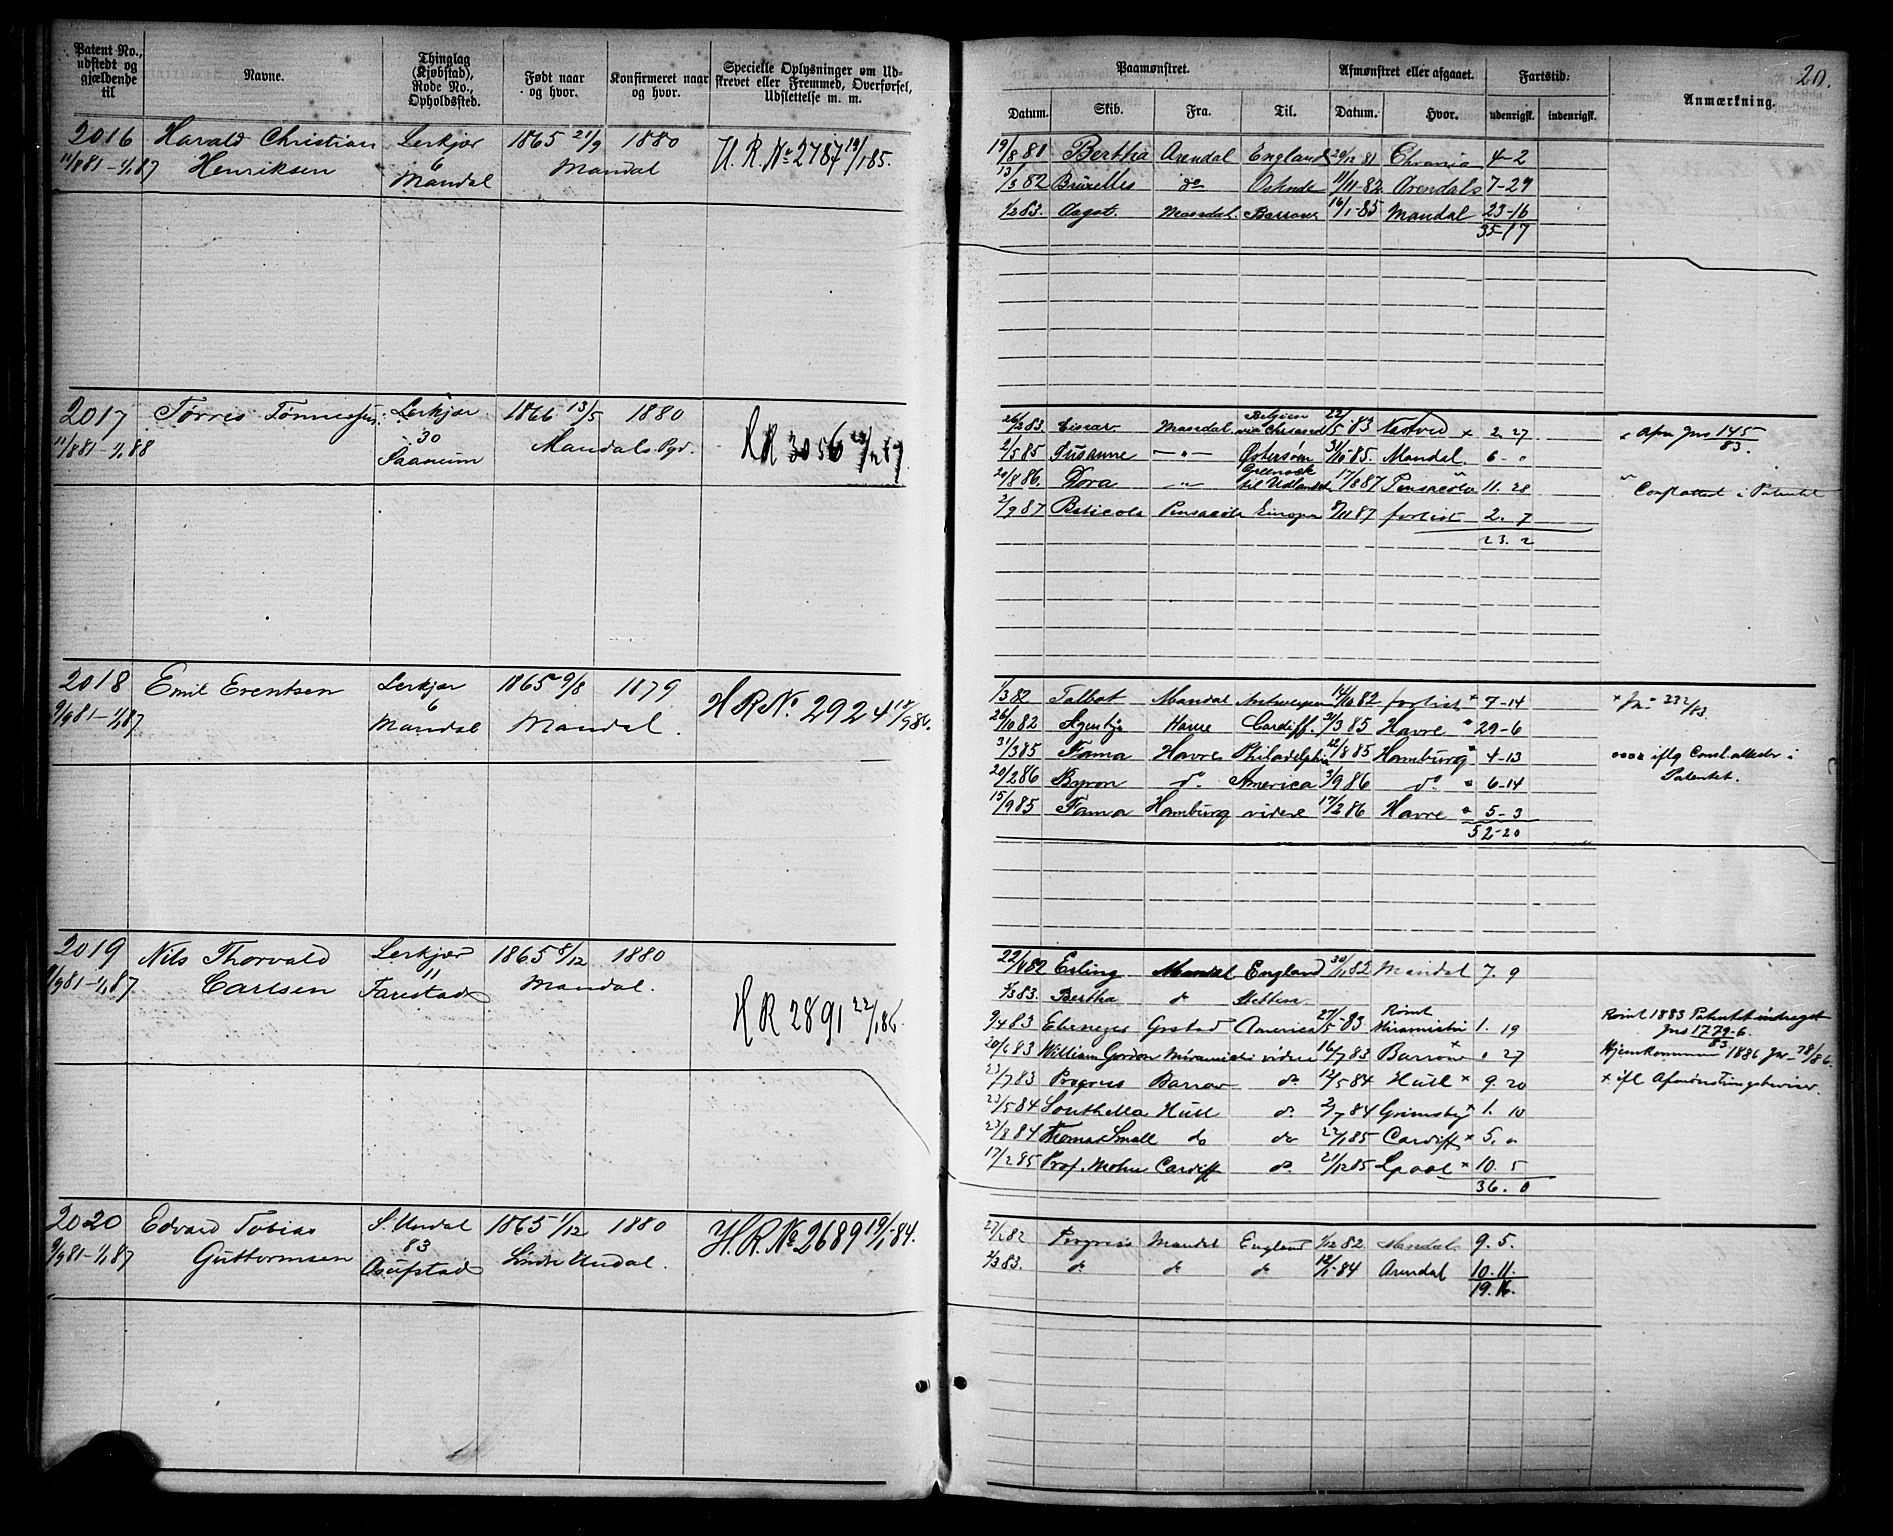 Patent No., udstedt og gjældende til
Navne.
Thinglag (Kjøbstad), Rode No., Opholdssted.
Født naar og hvor.
Konfirmeret naar og hvor.
Specielle Oplysninger om Udskrevet eller Fremmed, Overførsel, Udslettelse m. m.
Paamønstret.
Afmønstret eller afgaaet.
Fartstid:
Anmærkning.
20.
Datum. Skib. Fra. Til. Datum. Hvor. udenrigsk. indenrigsk.
2016 Harald Christian Lerkjær 1865 21/9 1880 H. R. No 2787 19/1 85.
11/8 81 - 1/1 87 Henriksen 6 Mandal
Mandal
19/8 81 Bertha Arendal England 20/12 81 Chrania 4-2
13/3 82 Bruxelles do Ostende 11/11-82 Arendals 7-29
1/2 83. Aagot. Mandal. Barrow 16/1-85 Mandal 23-16
35-17
2017 Tørres Tønnessen Lerkjær 1866 13/5 1880 HR 3056
11/8 81 - 1/1 88 30 Mandals Pgd.
Saanum
26/2 83. Mandal Belgien via Chrsand 22/5 83 Næstved × 2. 27 × Afm Jns 145/83.
2/5 85 Susanne — " — Østersøen 31/10-85. Mandal. 6 - "
20/8 86. Dora — " — Greenock til Udlandet 17/8 87 Pensacola 11. 28 Consl attest i Patentet
2/9 87 Pensacola Europa 9/11 87 forlist 2. 7
23. 2
2018 Emil Erentsen Lerkjær 1865 9/8 1879 HR No. 2924 18/9 86.
9/9 81 - 1/1 87 6 Mandal.
Mandal
1/3 82 Talbot Mandal Antwerpen 14/10 82 forlist × 7-14 × Jn. 232/83.
26/10 82 Havre Cardiff. 31/3 85 Havre 29-6
31/3 85 Fama Havre Philadelphia 12/8 85 Hamburg 4-13 iflg Consl. attester i
20/2 86 Byron do. America 3/9 86 do. 6-14 Patentet.
15/9 85 Fama Hamburg videre 17/2 86 Havre 5-3
52-20
2019 Nils Thorvald Lerkjær 1865 8/12 1880
9/9 81 - 1/1 87 Carlsen 11 Mandal.
Farestad HR 2891 22/1 86.
22/4 82 Erling Mandal England 30/11 82 Mandal 7. 9
1/3 83. Bertha do Stettin
9/4 83 Ebenezer Grstad America 27/5-83 Rømt Miramichi 1. 19 Rømt 1883 Patentet indraget
Jns 1779-6/83
20/6 83 William Gordon Miramichi videre 16/7 83 Barrow × " 27 Hjemkommen 1886 Jn. 78/86.
23/7 83 Progress Barrow do 12/5 84 Hull × 9. 20 × ifl Afmønstringsbeviser.
23/5 84 Southella Hull do. 2/7 84 Grimsby × 1. 10
23/8 84 Thomas Small do do 22/1 85 Cardiff × 5. "
17/2 85 Prof. Mohn Cardiff do 21/12 85 Lpool × 10. 5
36. 0
2020 Edvard Tobias S. Undal 1865 1/12 1880 H. R. No 2689 19/1-84.
9/9 81 - 1/1 87 Guttormsen 83 Søndre Undal.
Osufstad
27/1 82 Progress Mandal England 1/12 82 Mandal 9. 5.
2/3 83. do do do 12/1-84 Arendal 10. 11.
19. 16.